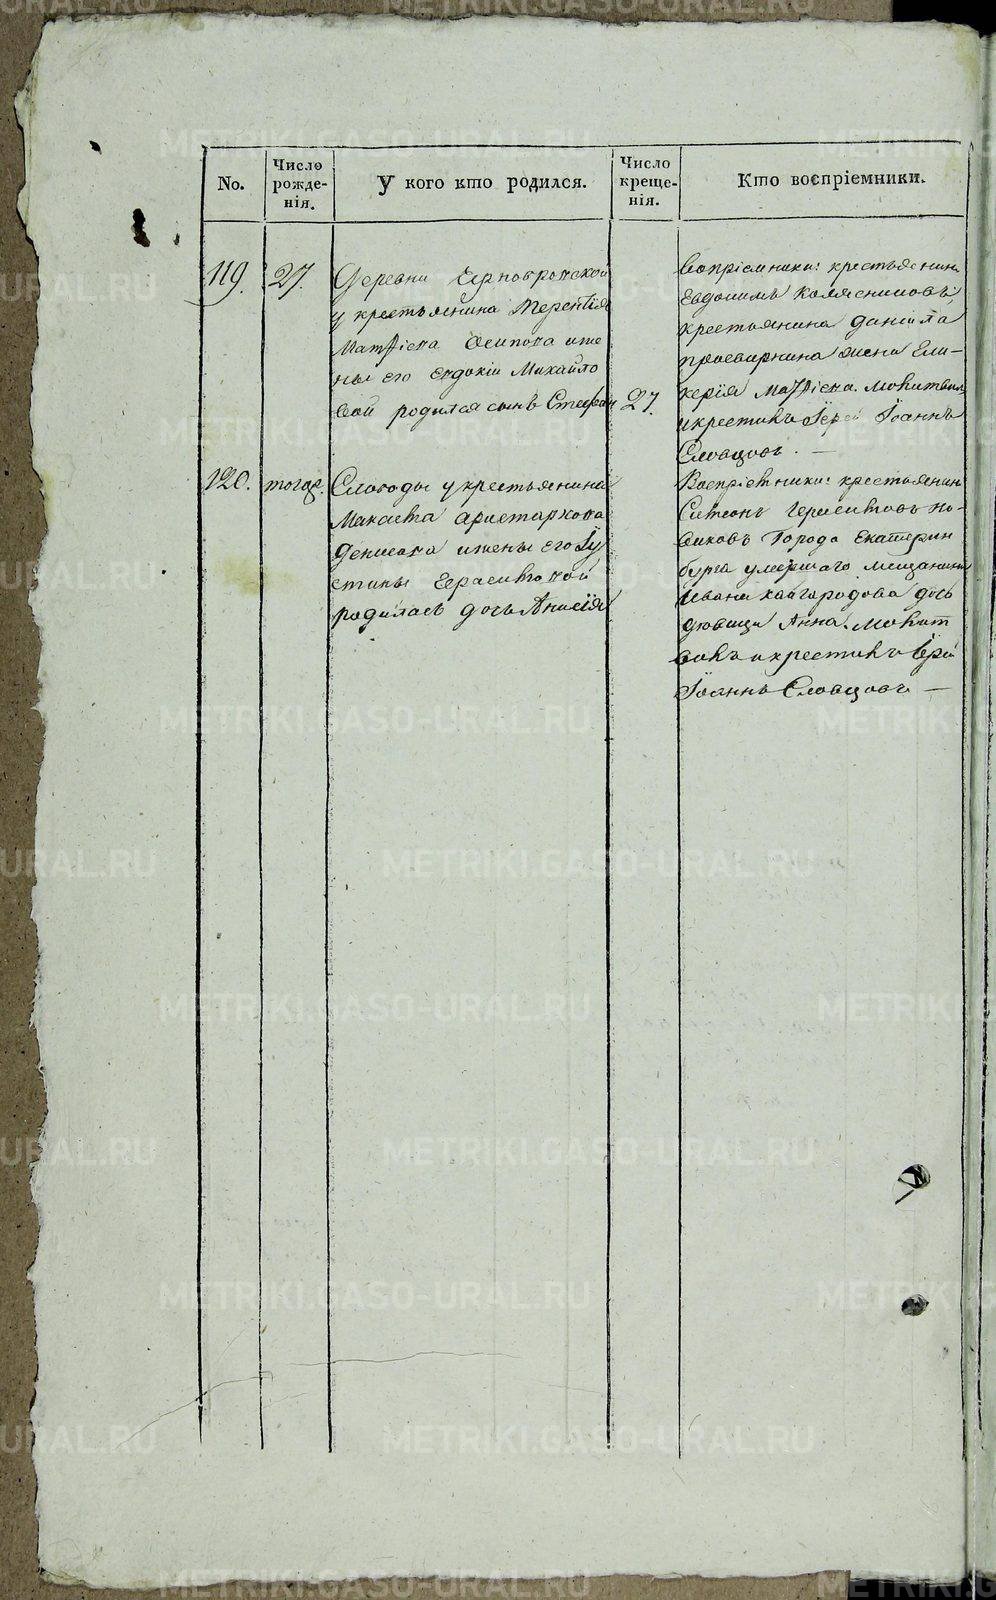 No.
Число рожде- нія.
У кого кто родился.
Число креще- нія.
Кто воспріемники.
119.
27.
Деревни
у крестьянина Терентія
Матѳіева Осипова и же
ны его Евдокіи Михайло
вой родился сынъ Стефан
27.
вопріемники: крестьянин
Евдокимъ Колясниковъ,
крестьянина Даніила
просвирнина жена Гли-
керія Матѳіева. Молитвил
и крестилъ Іерей Іоаннъ
Словцовъ. —
120.
тогоже.
Слободы у крестьянина
Максима Аристархова
Денисова и жены его Іу
стины Герасимовой
родилась дочь Анисія
Воспріемники: крестьянин
Симеонъ Герасимовъ но-
виковъ Города Екатерин
бурга умершаго мещанина
Ивана Кайгородова дочь
девица Анна. Молит
вилъ и крестилъ Іерей
Іоаннъ Словцовъ —
METRIKI.GASO-URAL.RU